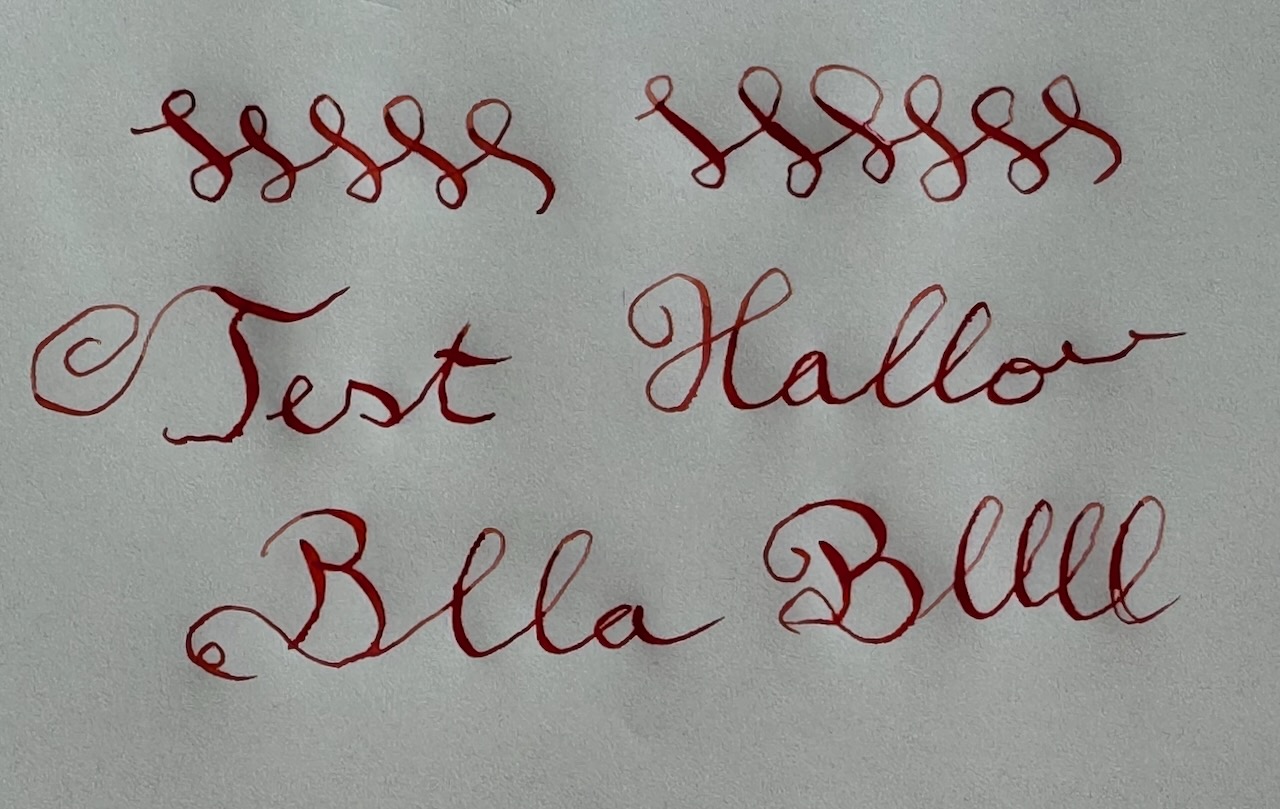 Test Hallo
Blla Bllll